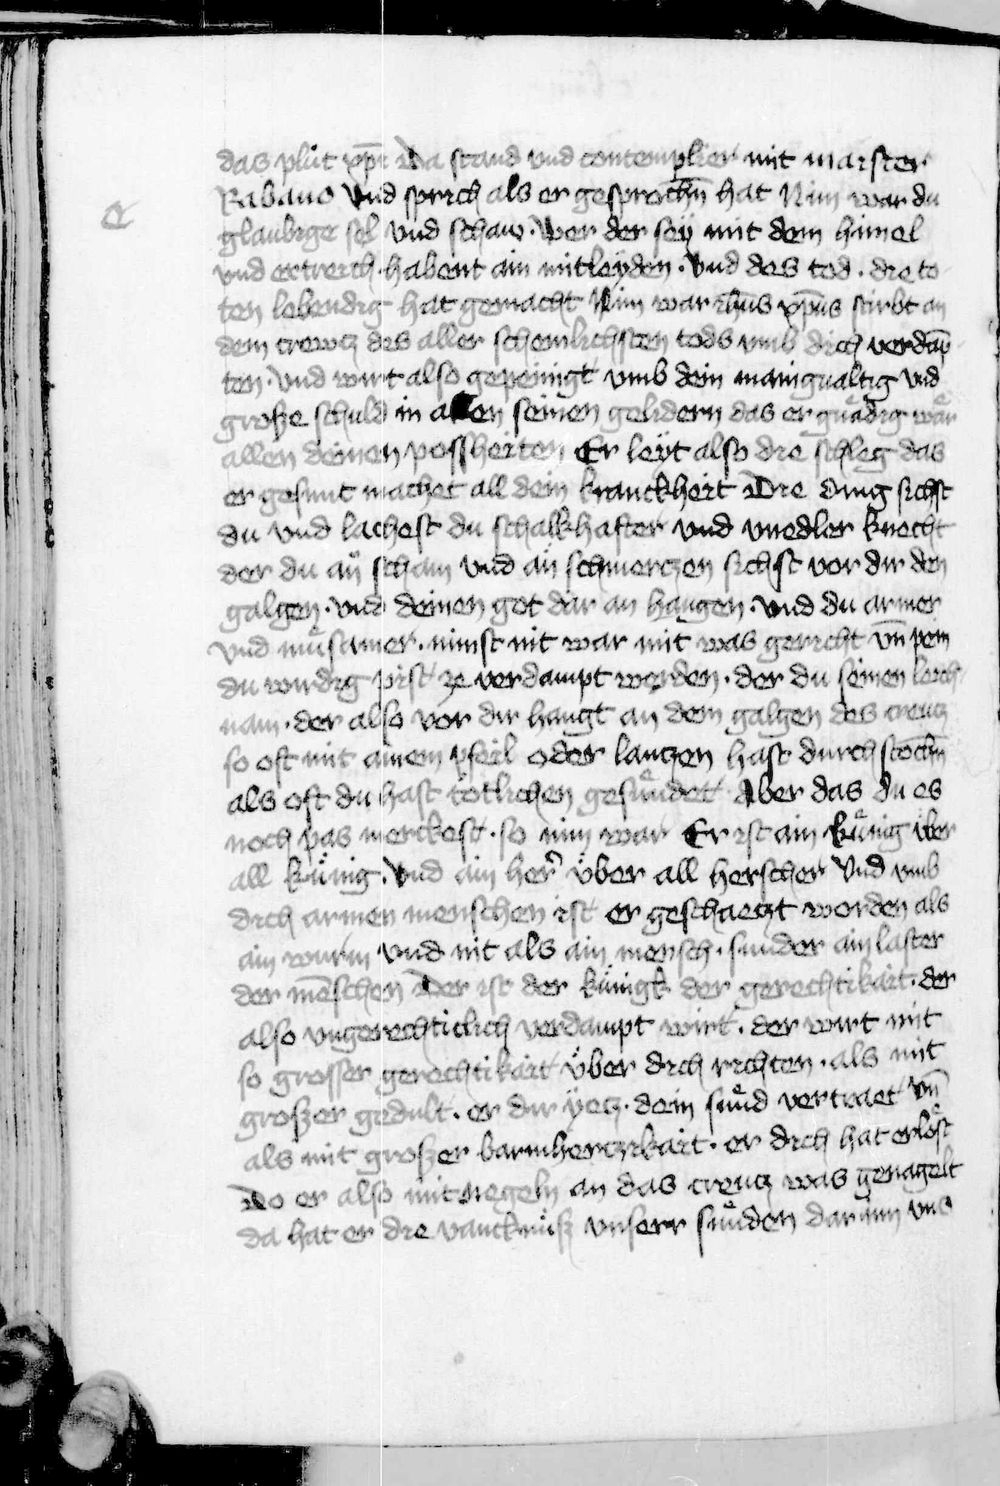 das plůt xp̄i Da stand vnd contemplier mit maister
Rabano Vnd sprich als er gesproch̄n hat Nim war du
glaubige sel vnd schaw. wer der seÿ mit dem himel
vnd ertreich. habent ain mitleyden. Vnd des tod. die to-
ten lebendig hat gemacht Nim war ih̄us xp̄us stirbt an
dem crewtz des aller schemlichsten tods vmb dich verdāp-
ten. Vnd wirt also gepeinigt vmb dein manigualtig vnd
große schuld in allen seinen gelidern das er gnädig wär
allen deinen possheiten Er leÿt also die schleg das
er gesunt machet all dein kranckheit Die ding sichst
du vnd lachest du schalkhafter vnd vnedler knecht
der du an scham vnd an schmertzen sichst vor dir den
galgen. vnd deinen got dar an hangen. Vnd du armer
vnd můsamer. nimst nit war mit was gericht vn̄ pein
du wirdig pist ze verdampt werden. der du seinen leich-
nam. der also vor dir hangt an dem galgen des creutz
so oft mit ainem pfeil oder lantzen hast durch stoch̄n
als oft du hast tötlichen gesündet Aber das du es
noch pas merckest. so nim war Er ist ain künig über
all künig. Vnd ain her̄ über all herscher Vnd vmb
dich armen menschen ist er geschaetzt worden als
ain wurm vnd nit als ain mensch. sunder ain laster
der mēschen Der ist der künigk der gerechtikait. der
also vngerechticlich verdampt wirt. der wirt mit
so grosser gerechtikait über dich richten. als mit
großer gedult. er dir yetz. dein sünd vertraet vn̄
als mit großer barmhertzikait. er dich hat erlöst
Do er also mit negeln an das creutz was genagelt
da hat er die vancknüß vnserr sünden darinn vns